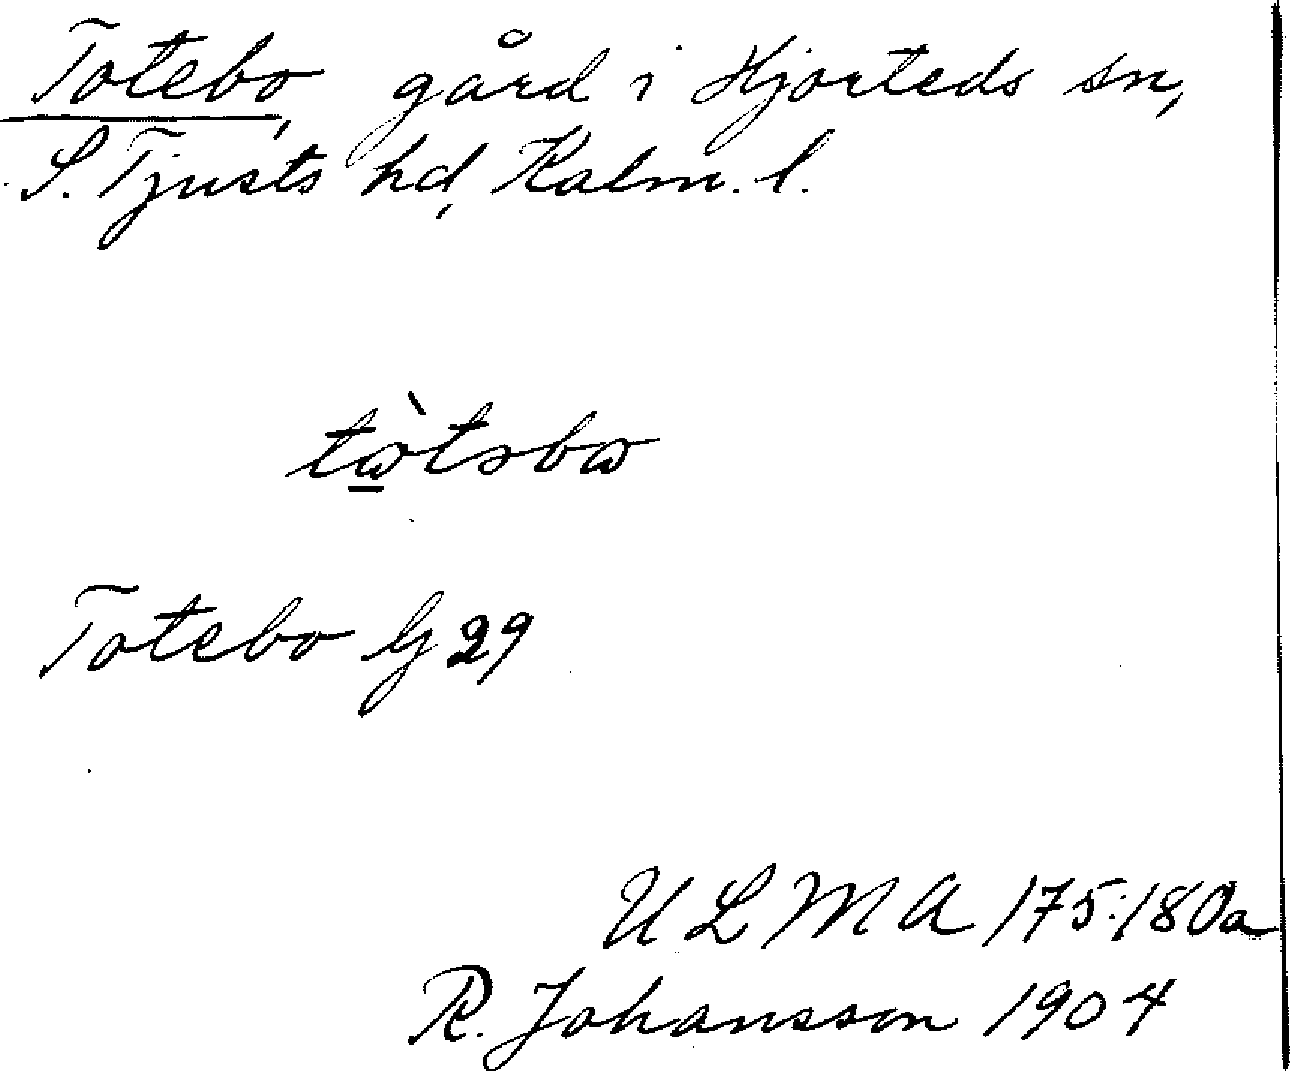 Totebo, gård i Hjorteds sn,
S. Tjusts hd, Kalm. l.
tɷ̠̀təbɷ
Totebo G 29
ULMA 175:180a
R. Johansson 1904